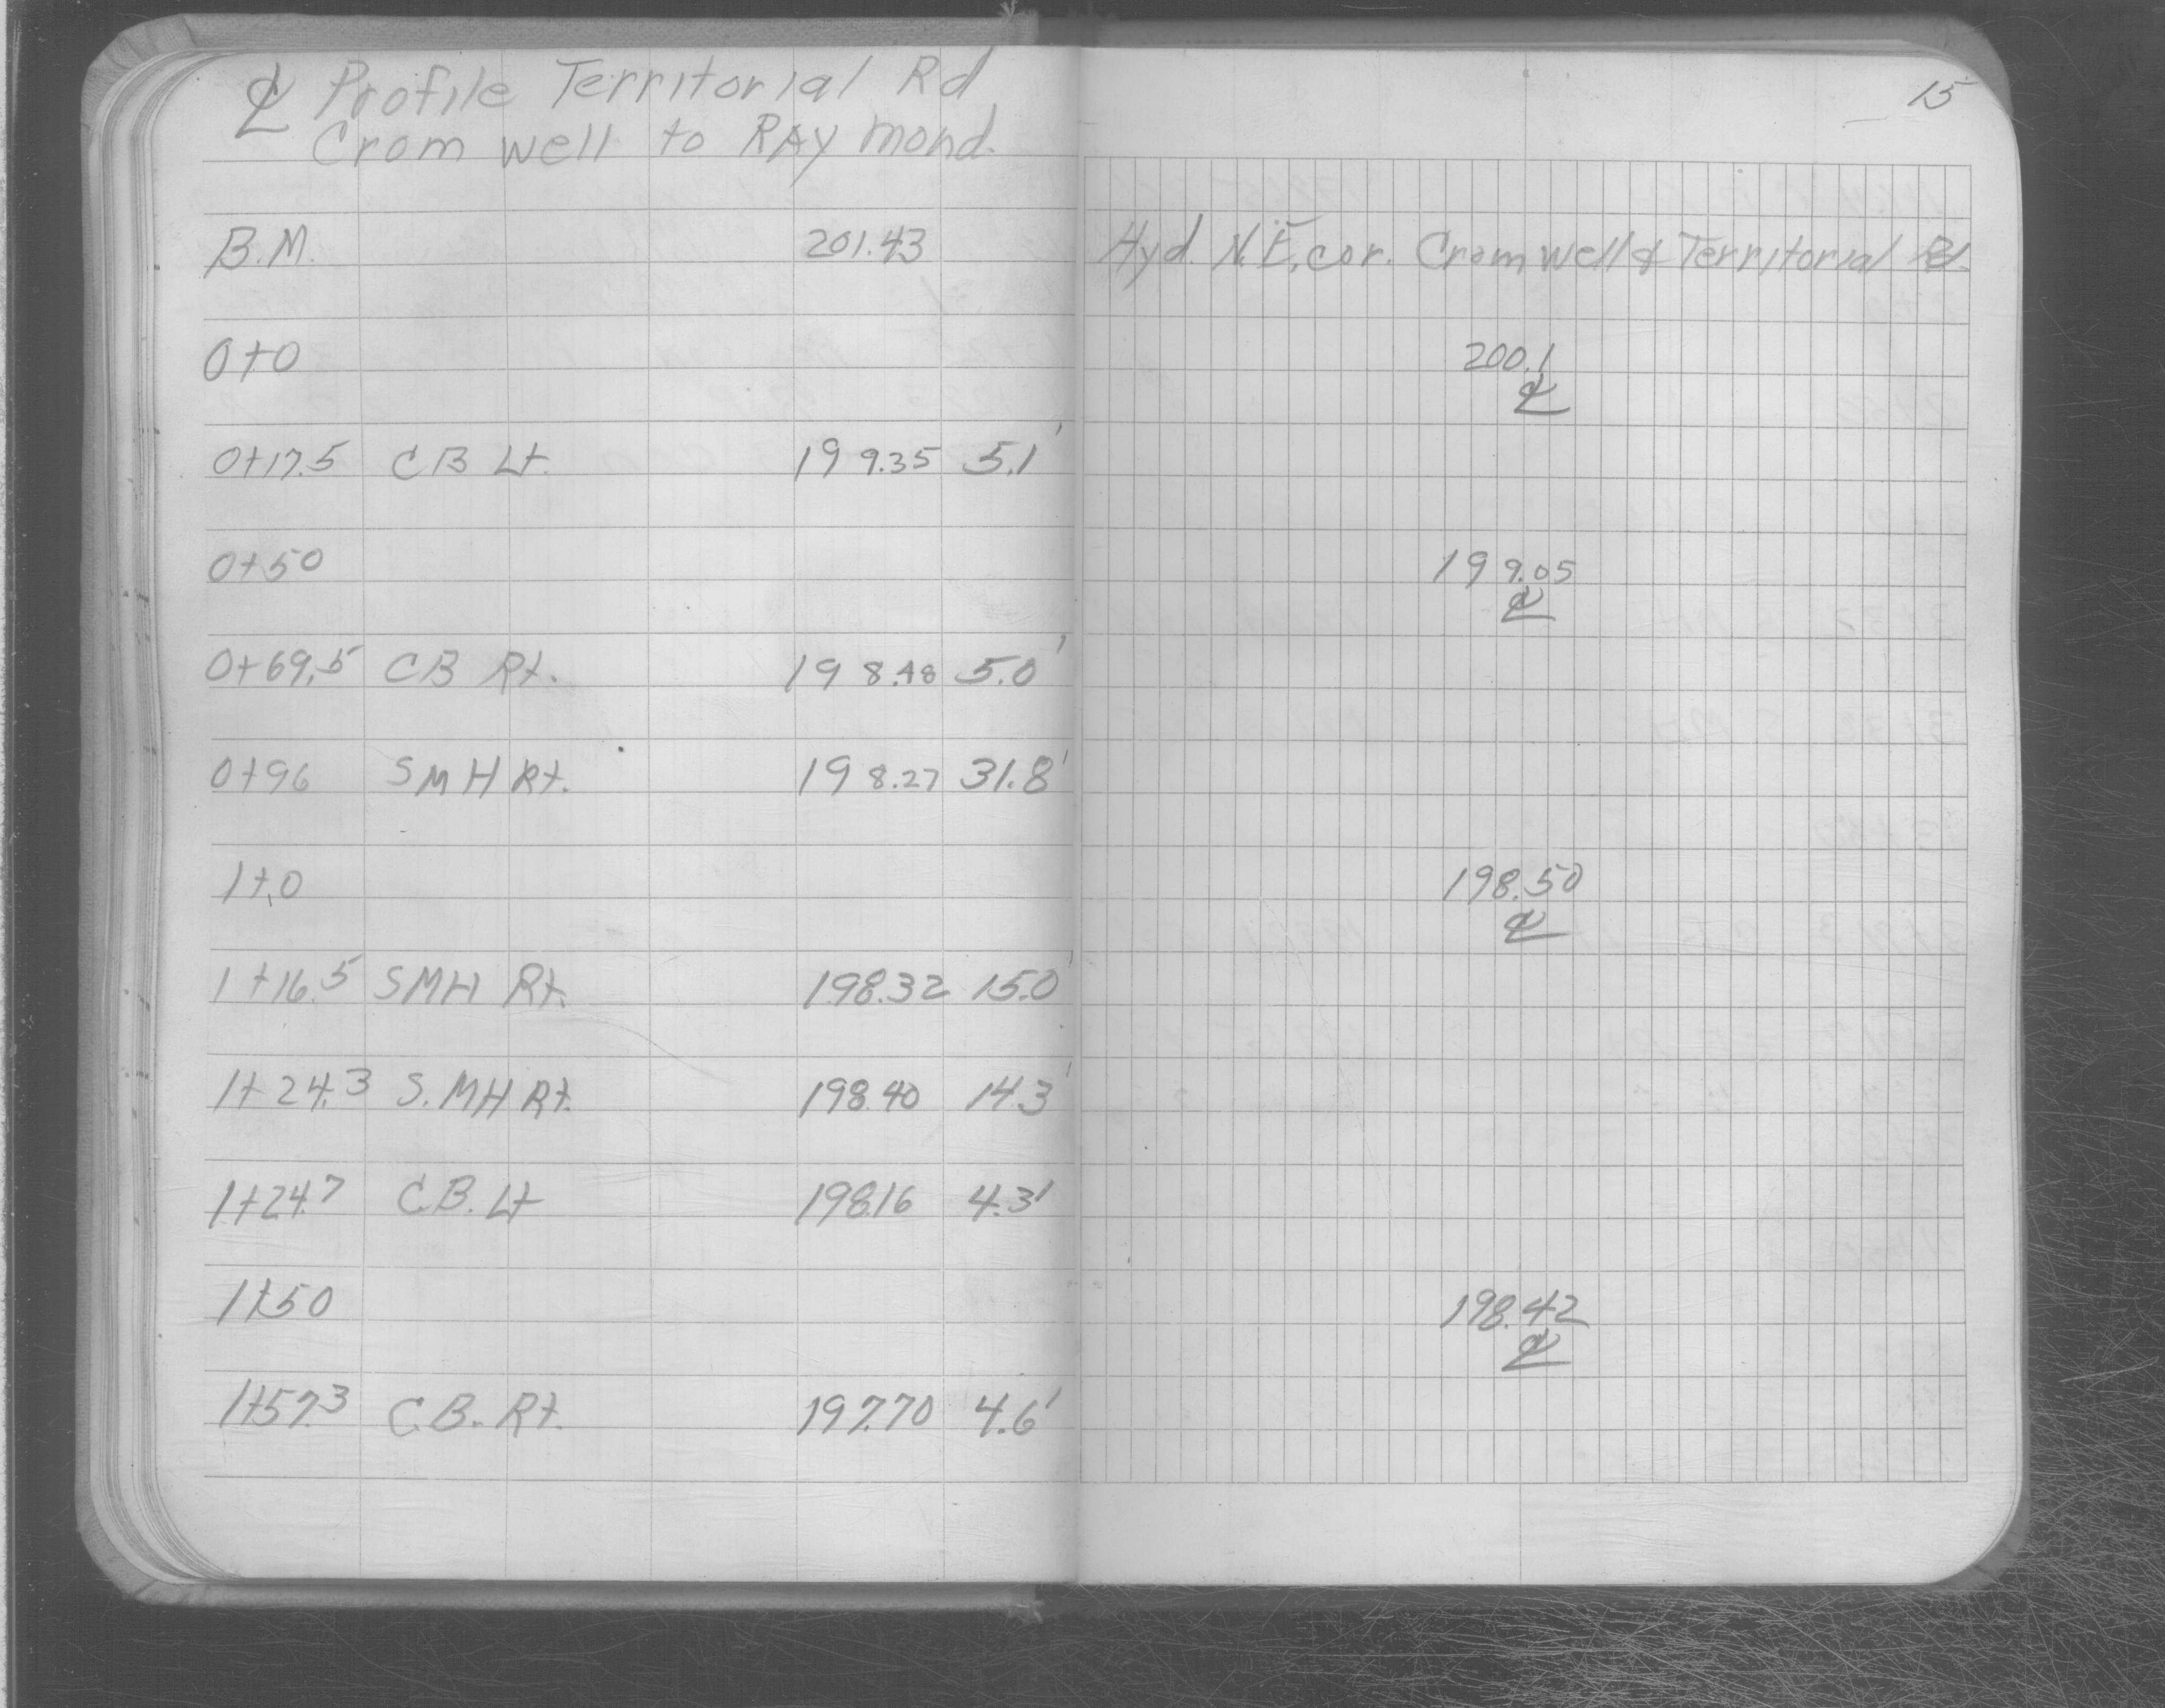 ℄ Profile Territorial Rd
Cromwell to RAymond.
15
B.M. 201.43 Hyd. N.E. cor. Cromwell & Territorial Rd.
0+0 200.1
℄
0+17.5 CB Lt. 199.35 5.1'
0+50 199.05
℄
0+69.5 CB Rt. 198.48 5.0'
0+96 SMH Rt. 198.27 31.8'
1+0 198.50
℄
1+16.5 SMH Rt. 198.32 15.0'
1+24.3 S.MH Rt. 198.40 14.3'
1+24.7 C.B. Lt 198.16 4.3'
1+50 198.42
℄
1+57.3 C.B. Rt. 197.70 4.6'